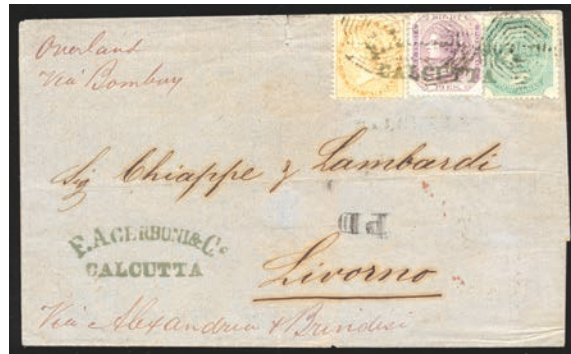 Overland
Via Bombay
CALCUTTA
Sig Chiappe & Lombardi
PD
F. ACERBONI & Co
CALCUTTA
Livorno
Via Alexandria & Brindisi